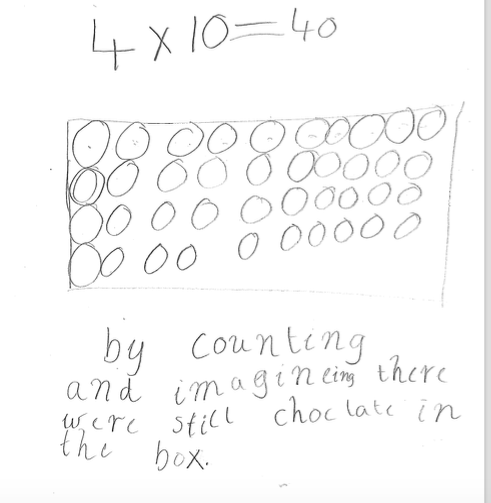 4 x 10 = 40
by counting
and imagineing there
were still choclate in
the box.